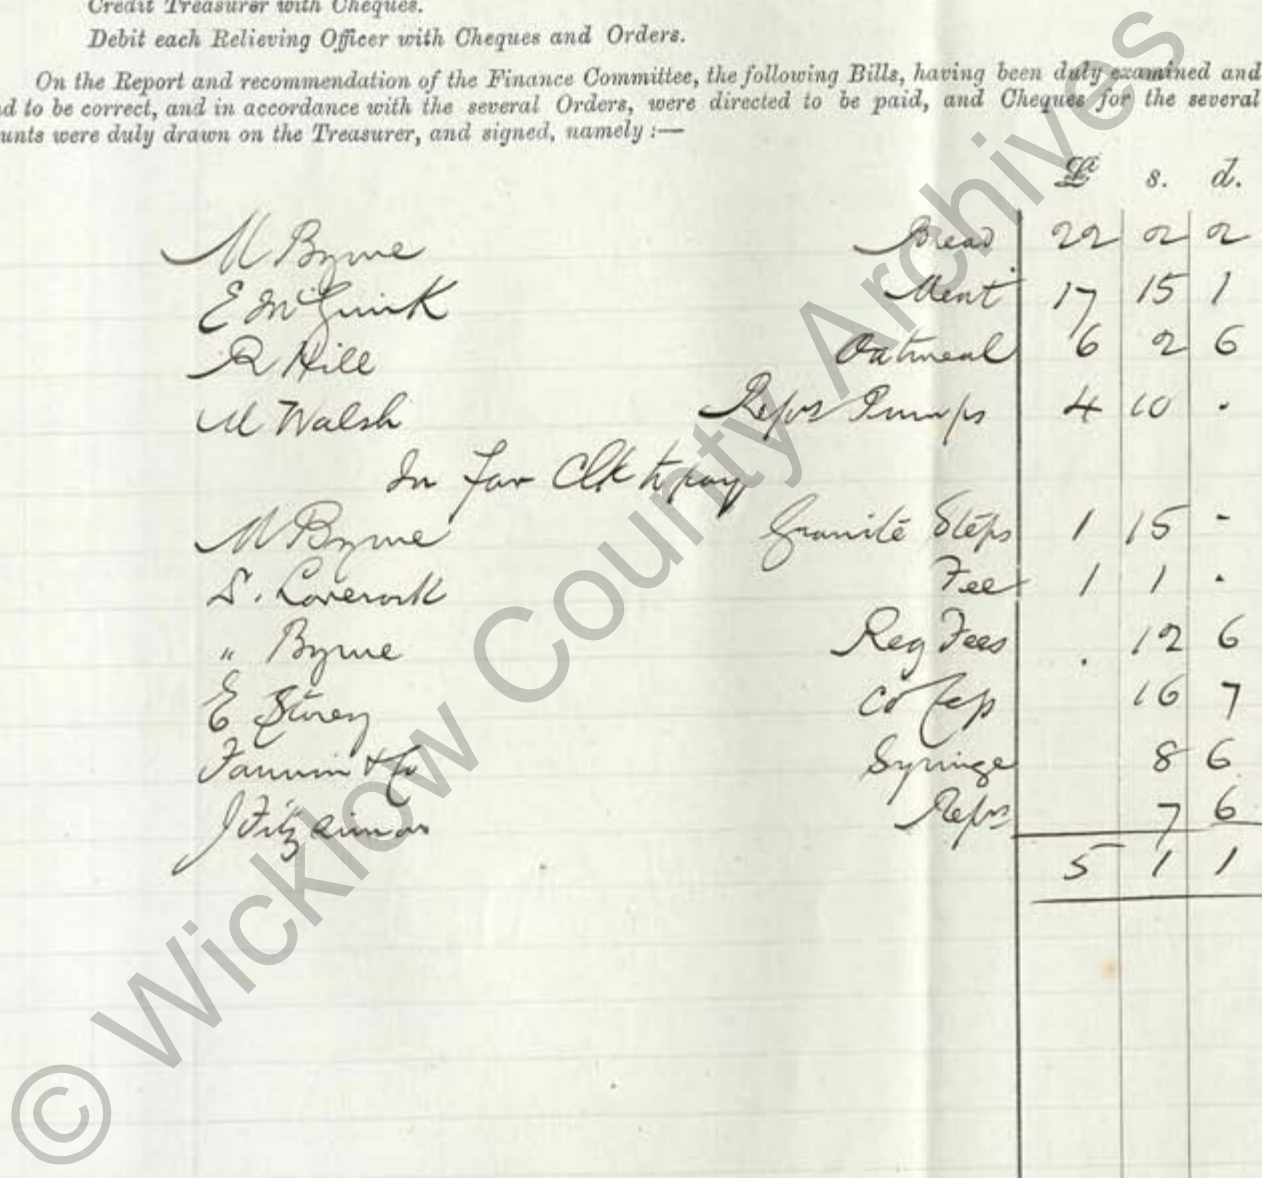 Credit Treasurer with Cheques.
Debit each Relieving Officer with Cheques and Orders.
On the Report and recommendation of the Finance Committee, the following Bills, having been duly examined and
d to be correct, and in accordance with the several Orders, were directed to be paid, and Cheques for the several
unts were duly drawn on the Treasurer, and signed, namely :—
£ s. d.
M Byrne Bread 22 2 2
E McGuirk Meat 17 15 1
R Hill Oatmeal 6 2 6
M Walsh Reprs Pumps 4 10 .
In fav Clk to pay
M Byrne Granite Steps 1 15 -
S. Loverock Fee 1 1 .
" Byrne Reg Fees . 12 6
E Storey Co 16 7
Fannin & Co Syringe 8 6
J Fitzsimons Reprs 7 6
5 1 1
© Wicklow County Archives